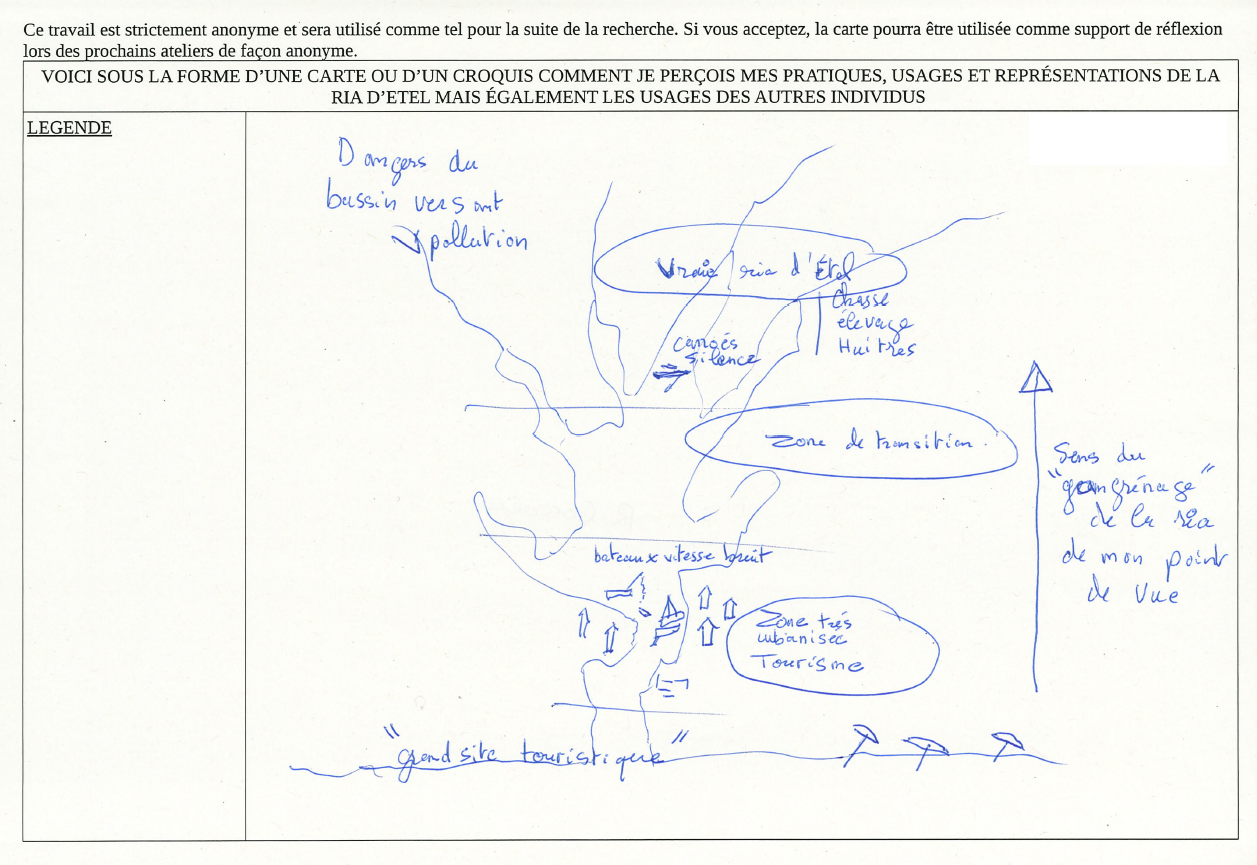 Ce travail est strictement anonyme et sera utilisé comme tel pour la suite de la recherche. Si vous acceptez, la carte pourra être utilisée comme support de réflexion
lors des prochains ateliers de façon anonyme.
VOICI SOUS LA FORME D’UNE CARTE OU D’UN CROQUIS COMMENT JE PERÇOIS MES PRATIQUES, USAGES ET REPRÉSENTATIONS DE LA
RIA D’ETEL MAIS ÉGALEMENT LES USAGES DES AUTRES INDIVIDUS
LEGENDE
Dangers du
bassin versant
pollution
Vraie ria d'Étel
Chasse
élevage
Huitres
canoés
silence
Zone de transition.
Sens du
"gangrénage"
de la ria
de mon point
de vue
bateaux vitesse bruit
Zone très
urbanisée
Tourisme
"grand site touristique"